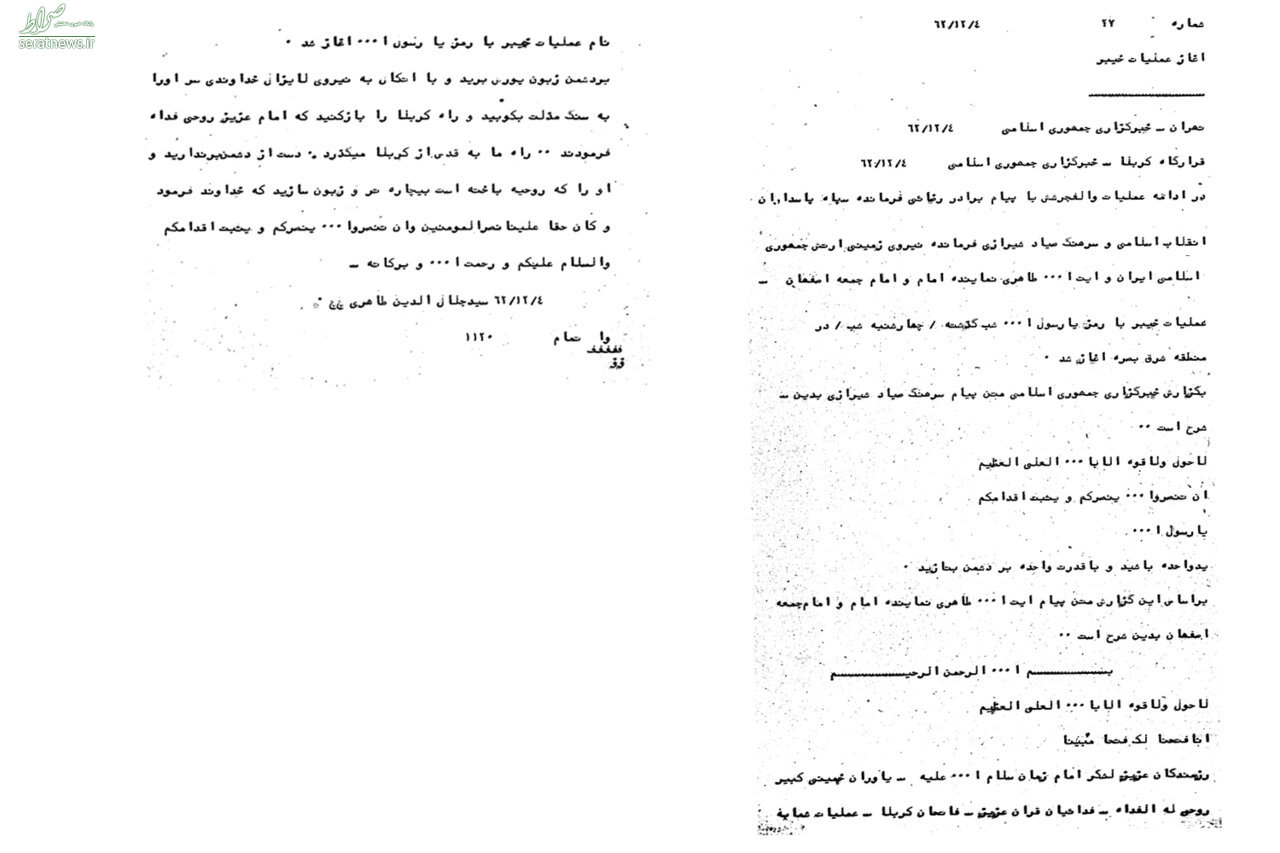 شماره ۲۷ ۶۲/۱۲/۴
اغاز عملیات خیبر
تهران ــ خبرگزاری جمهوری اسلامی ۶۲/۱۲/۴
قرارگاه کربلا ــ خبرگزاری جمهوری اسلامی ۶۲/۱۲/۴
در ادامه عملیات والفجرشش با پیام برادر رضائی فرمانده سپاه پاسداران
انقلاب اسلامی و سرهنگ صیاد شیرازی فرمانده نیروی زمینی ارتش جمهوری
اسلامی ایران و ایت ا ۰۰۰ طاهری نماینده امام و امام جمعه اصفهان ــ
عملیات خیبر با رمز یا رسول ا ۰۰۰ شب گذشته / چهارشنبه شب / در
منطقه شرق بصره اغاز شد ۰
بگزارش خبرگزاری جمهوری اسلامی متن پیام سرهنگ صیاد شیرازی بدین ــ
شرح است ۰۰
لاحول ولاقوه الابا ۰۰۰ العلی العظیم
ان تنصروا ۰۰۰ ینصرکم و یثبت اقدامکم
یا رسول ا ۰۰۰
یدواحده باشید و باقدرت واحده بر دشمن بتازید ۰
براساس این گزارش متن پیام ایت ا ۰۰۰ طاهری نماینده امام و امام جمعه
اصفهان بدین شرح است ۰۰
بـــــــــم ا ۰۰۰ الرحمن الرحیـــــــــم
لاحول ولاقوه الابا ۰۰۰ العلی العظیم
انافتحنا لک فتحا مبینا
رزمندگان عزیز لشگر امام زمان سلام ا ۰۰۰ علیه ــ یاوران خمینی کبیر
روحی له الفداه ــ فدائیان قران عزیز ــ فاتحان کربلا ــ عملیات شمابه
نام عملیات خیبر با رمز یا رسول ا ۰۰۰ اغاز شد ۰
بردشمن زبون یورش برید و با اتکال به نیروی لایزال خداوندی سر اورا
به سنگ مذلت بکوبید و راه کربلا را بازکنید که امام عزیز روحی فداه
فرمودند ۰۰ راه ما به قدس از کربلا میگذرد ۰ دست از دشمن برندارید و
او را که روحیه باخته است بیچاره تر و زبون سازید که خداوند فرمود
و کان حقا علینانصرالمومنین وان تنصروا ۰۰۰ ینصرکم و یثبت اقدامکم
والسلام علیکم و رحمت ا ۰۰۰ و برکاته ــ
۶۲/۱۲/۴ سیدجلال الدین طاهری
وا تمام ۱۱۲۰
صراط
seratnews.ir